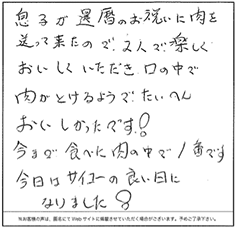 息子が還暦のお祝いに肉を
送って来たので2人で楽しく
おいしくいただき口の中で
肉がとけるようでたいへん
おいしかったです!
今まで食べた肉の中で1番です
今日はサイコーの良い日に
なりました!
※お客様の声は、匿名にてWebサイトに掲載させていただく場合がございます。予めご了承下さい。